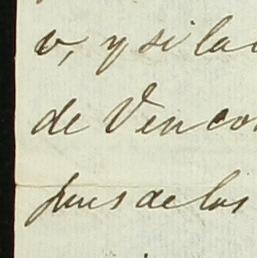 v, y si la
de Venco
pues de los